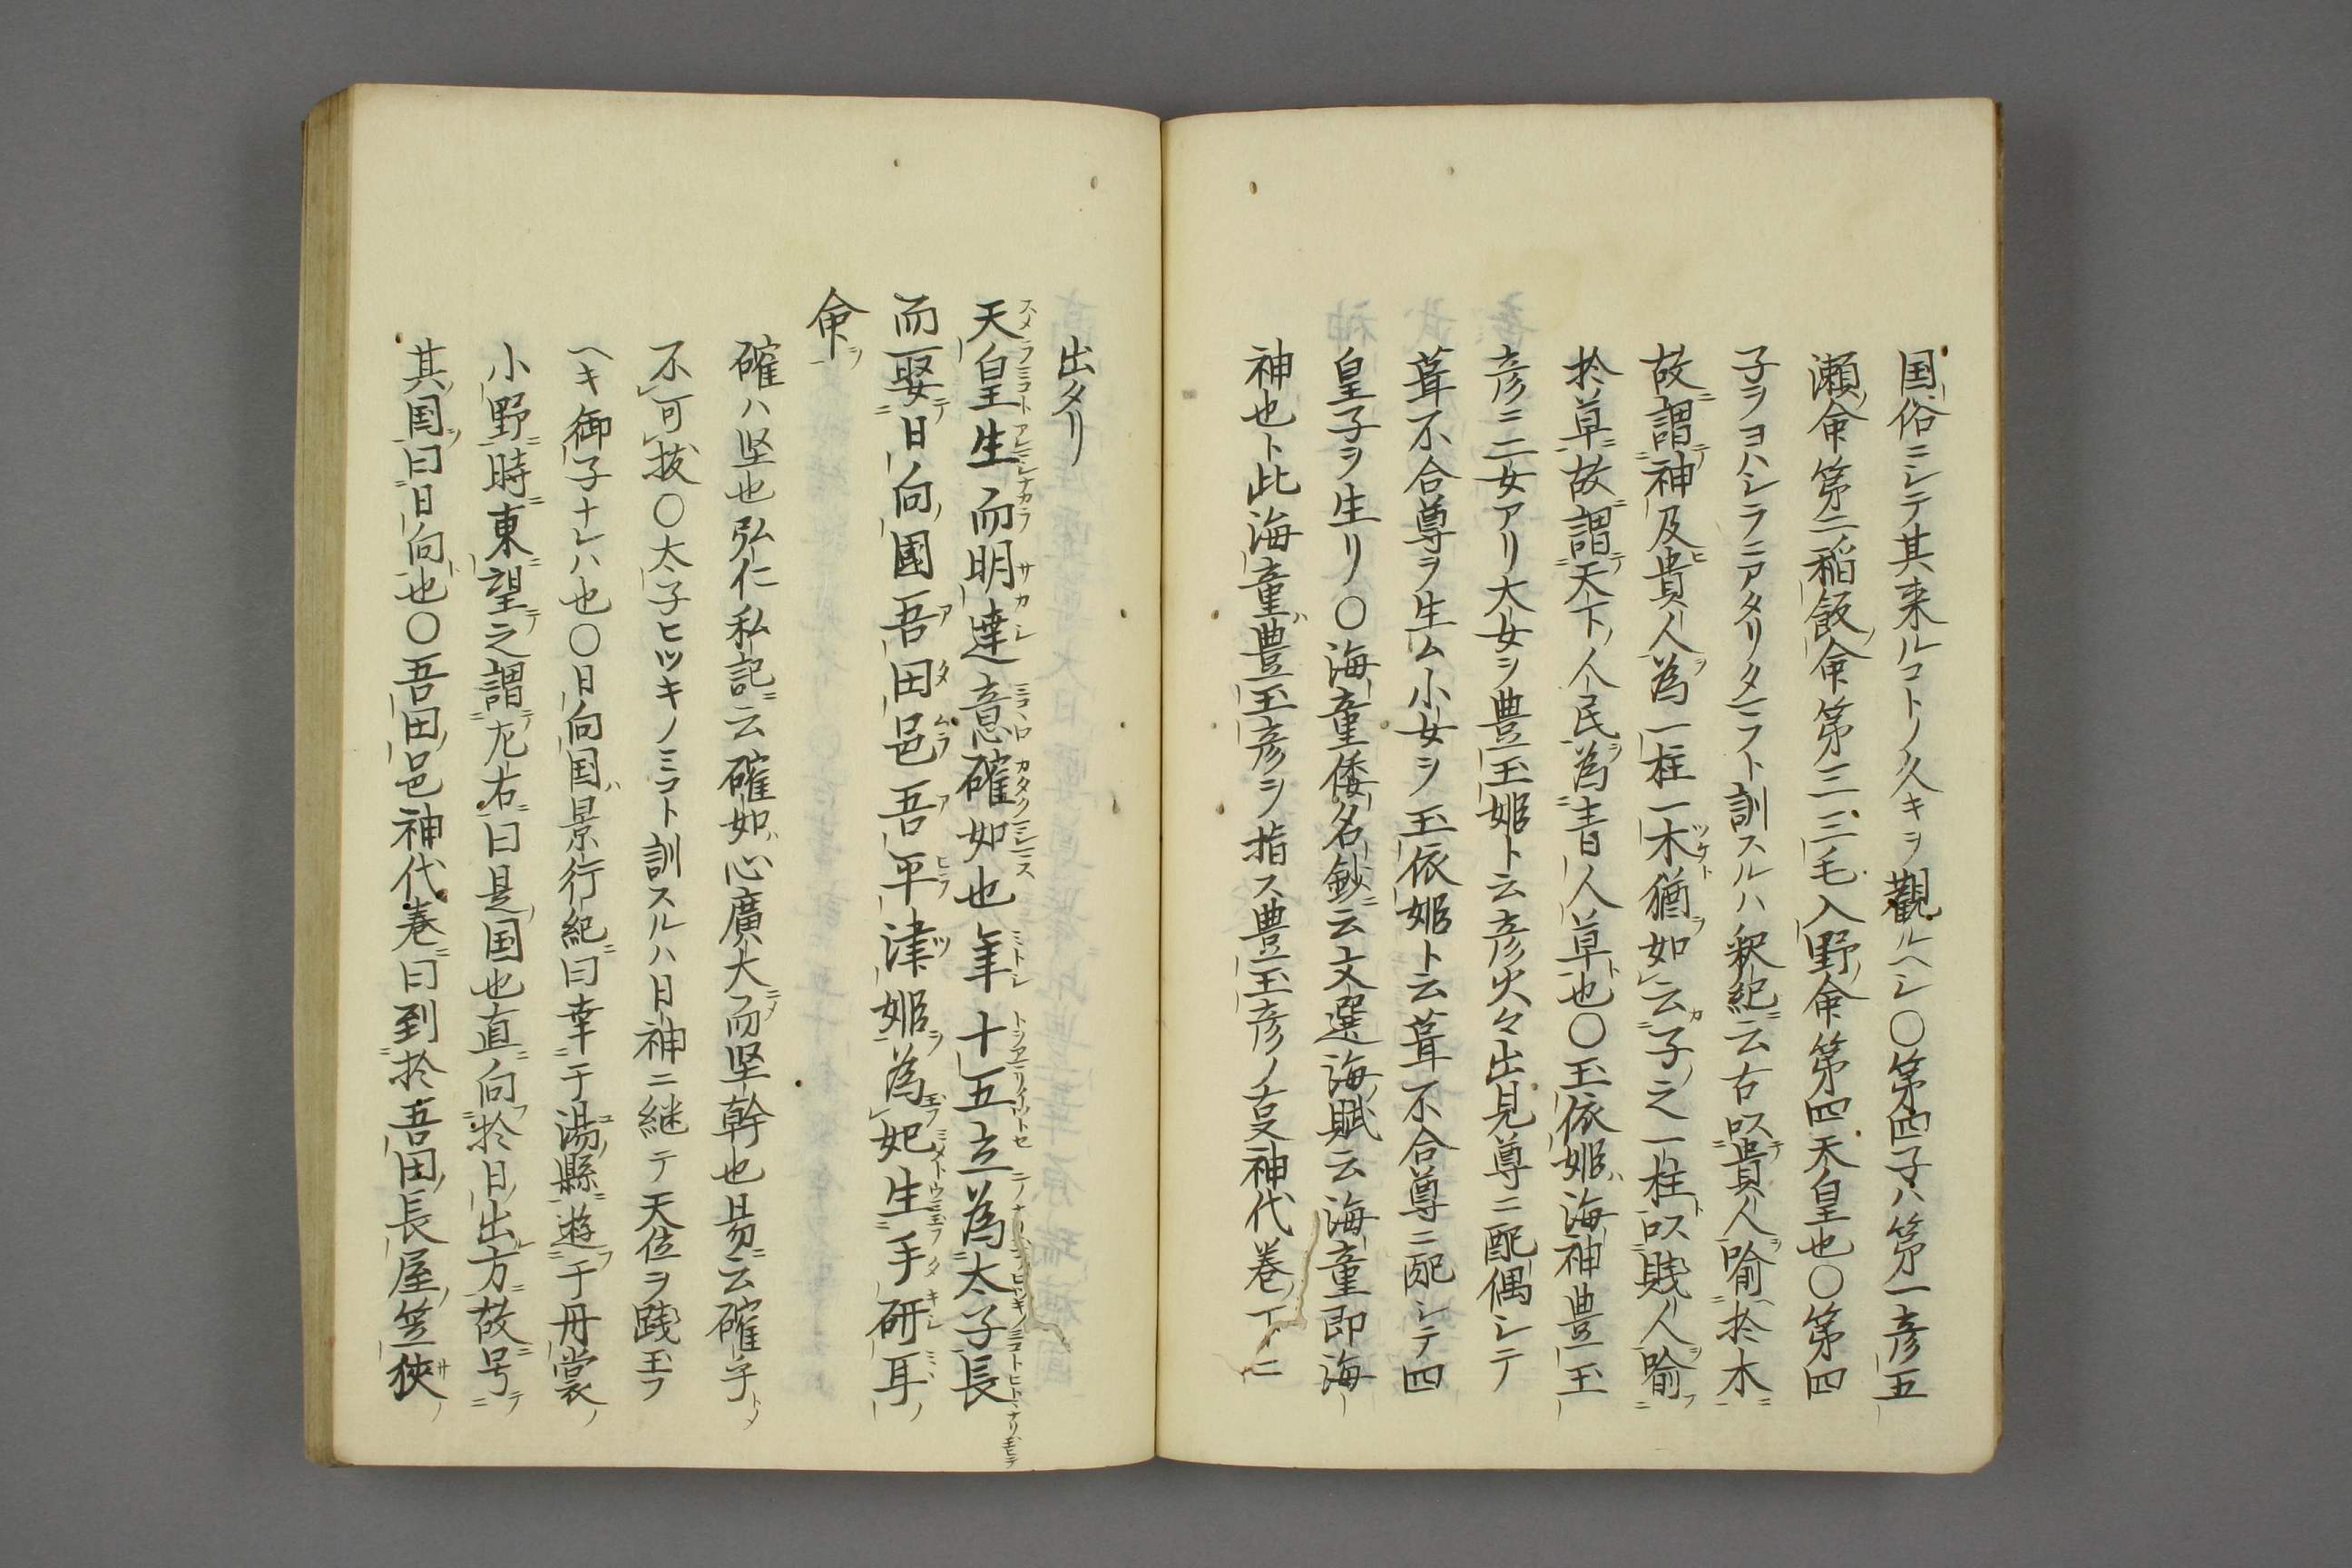 国俗ニシテ其来ルコトノ久キヲ觀ルヘシ○第四子ハ第一彦五
瀬命第二稲飯命第三三毛入野命第四天皇也○第四
子ヲヨハシラニアタリタマフト訓スルハ釈紀云古以貴人喩於木
故謂神及貴人為一柱一木猶如云子之一柱以賤人喩
於草故謂天下人民為青人草也○玉依姫海神豊玉
彦ニ二女アリ大女ヲ豊玉姫ト云彦火々出見尊ニ配偶シテ
葺不合尊ヲ生ム小女ヲ玉依姫ト云葺不合尊ニ配シテ四
皇子ヲ生リ○海童倭名鈔云文選海賦云海童即海
神也ト此海童豊玉彦ヲ指ス豊玉彦ノ支神代巻下ニ
出タリ
天皇生而明達意確如也年十五立為太子長
而娶日向國吾田邑吾平津姫為妃生手研耳
命
確ハ堅也弘仁私記云確如心廣大而堅幹也易云確乎
不可抜○太子ヒツキノミコト訓スルハ日神ニ継テ天位ヲ践玉フ
ヘキ御子ナレハ也○日向国景行紀曰幸于湯縣遊于丹裳
小野時東望之謂左右曰是国也直向於日出方故号
其国曰日向也○吾田邑神代巻曰到於吾田長屋笠狭